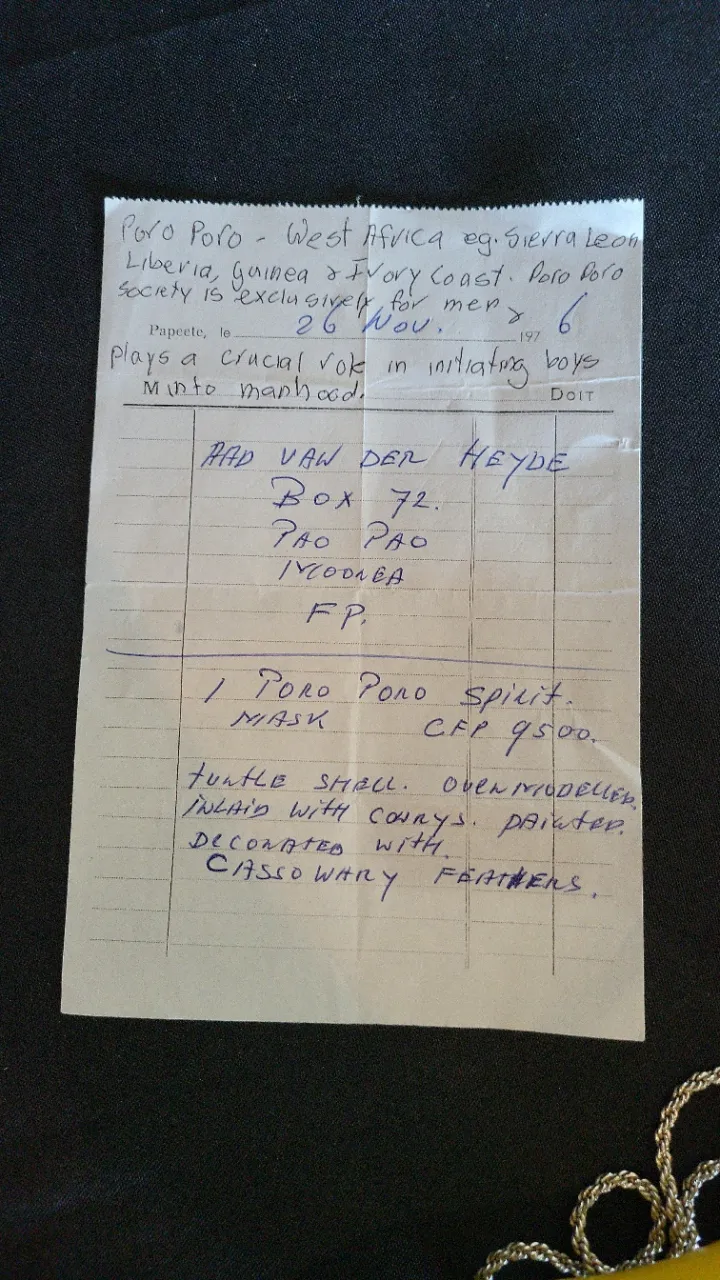 Poro Poro - West Africa eg. Sierra Leon
Liberia, Guinea & Ivory Coast. Poro Poro
society is exclusively for men &
Papeete, le 26 Nov. 197 6
plays a crucial role in initiating boys
M into manhood. DOIT
AAD VAN DER HEYDE
BOX 72.
PAO PAO
MOOREA
FP.
1 PORO PORO SPIRIT.
MASK CFP 9500.
TURTLE SHELL. OVERMODELLED.
INLAID WITH COWRYS. PAINTED.
DECORATED WITH.
CASSOWARY FEATHERS.